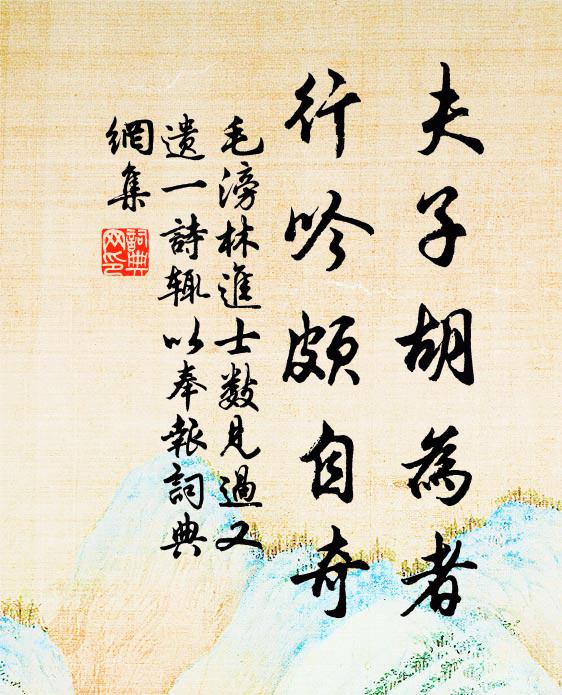 夫子胡為者
行吟頗自奇
毛滂林進士數見過又
遺一詩輒以奉報詞典
網集
詞典
网印